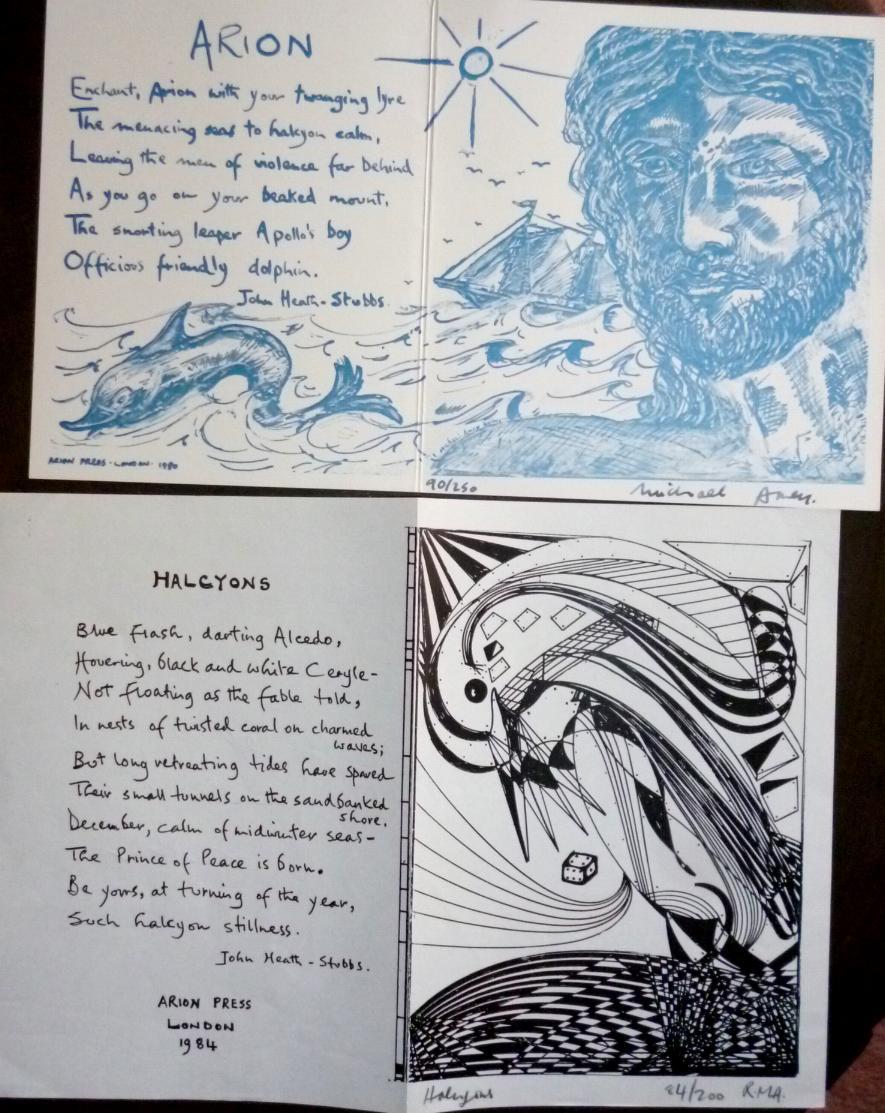 ARION
Enchant, Arion with your twanging lyre
The menacing seas to halcyon calm,
Leaving the men of violence far behind
As you go on your beaked mount,
The snorting leaper Apollo's boy
Officious friendly dolphin.
John Heath-Stubbs.
ARION PRESS · LONDON · 1980
90/250
Michael
HALCYONS
Blue flash, darting Alcedo,
Hovering, black and white Ceryle-
Not floating as the fable told,
In nests of twisted coral on charmed
waves;
But long retreating tides have spared
Their small tunnels on the sandbanked
shore.
December, calm of midwinter seas-
The Prince of Peace is born.
Be yours, at turning of the year,
Such halcyon stillness.
John Heath-Stubbs.
ARION PRESS
LONDON
1984
Halcyons
84/200 R.M.A.